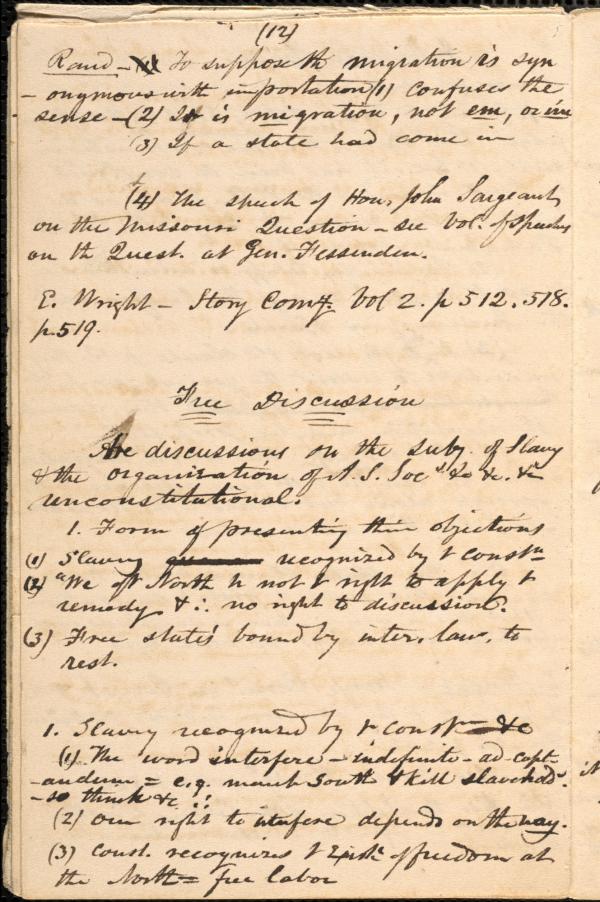 (12)
Rand – To suppose th migration is syn
- onymous with importation (1) confuses the
sense – (2) It is migration, not em, or im
(3) If a state had come in
(4) The speech of Hon. John Sargeant,
on the Missouri Question – see Vol. of Speeches
on th Quest. at Gen. Fessenden.
E. Wright – Story Comy. Vol 2. p 512. 518.
p. 519.
Free Discussion
Are discussions on the subj. of Slavy
& the organization of A. S. Soc &c &c.
unconstitutional.
1. Form of presenting this objections
(1) Slavery recognized by t constn
(2) "We of t North h not t right to apply t
remedy & ∴ no right to discussion.
(3) Free states bound by inter. law. to
rest.
1. Slavery recognized by t const &c
(1) The word interfere – indefinite – ad capt-
-andum = e.g. march South & kill slavehods.
- so think &c !!
(2) our right to interfere depends on the way.
(3) Const. recognizes t of freedom at
the North = free labor